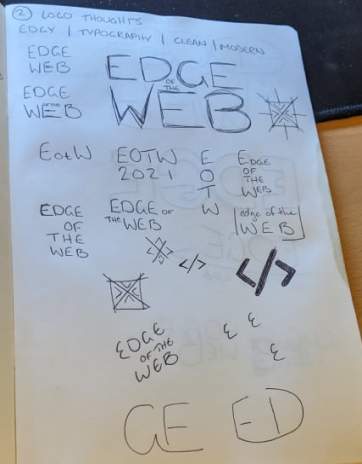 ② LOGO THOUGHTS
EDGY | TYPOGRAPHY | CLEAN | MODERN
EDGE
WEB
EDGE
OF THE
WEB
EDGE
OF THE
WEB
EotW
EOTW
2021
E
O
T
W
EDGE
OF
THE
WEB
EDGE
OF
THE
WEB
EDGE OF
THE WEB
edge of the
WEB
</>
</>
EDGE
OF THE
WEB
E E
E
GE ED